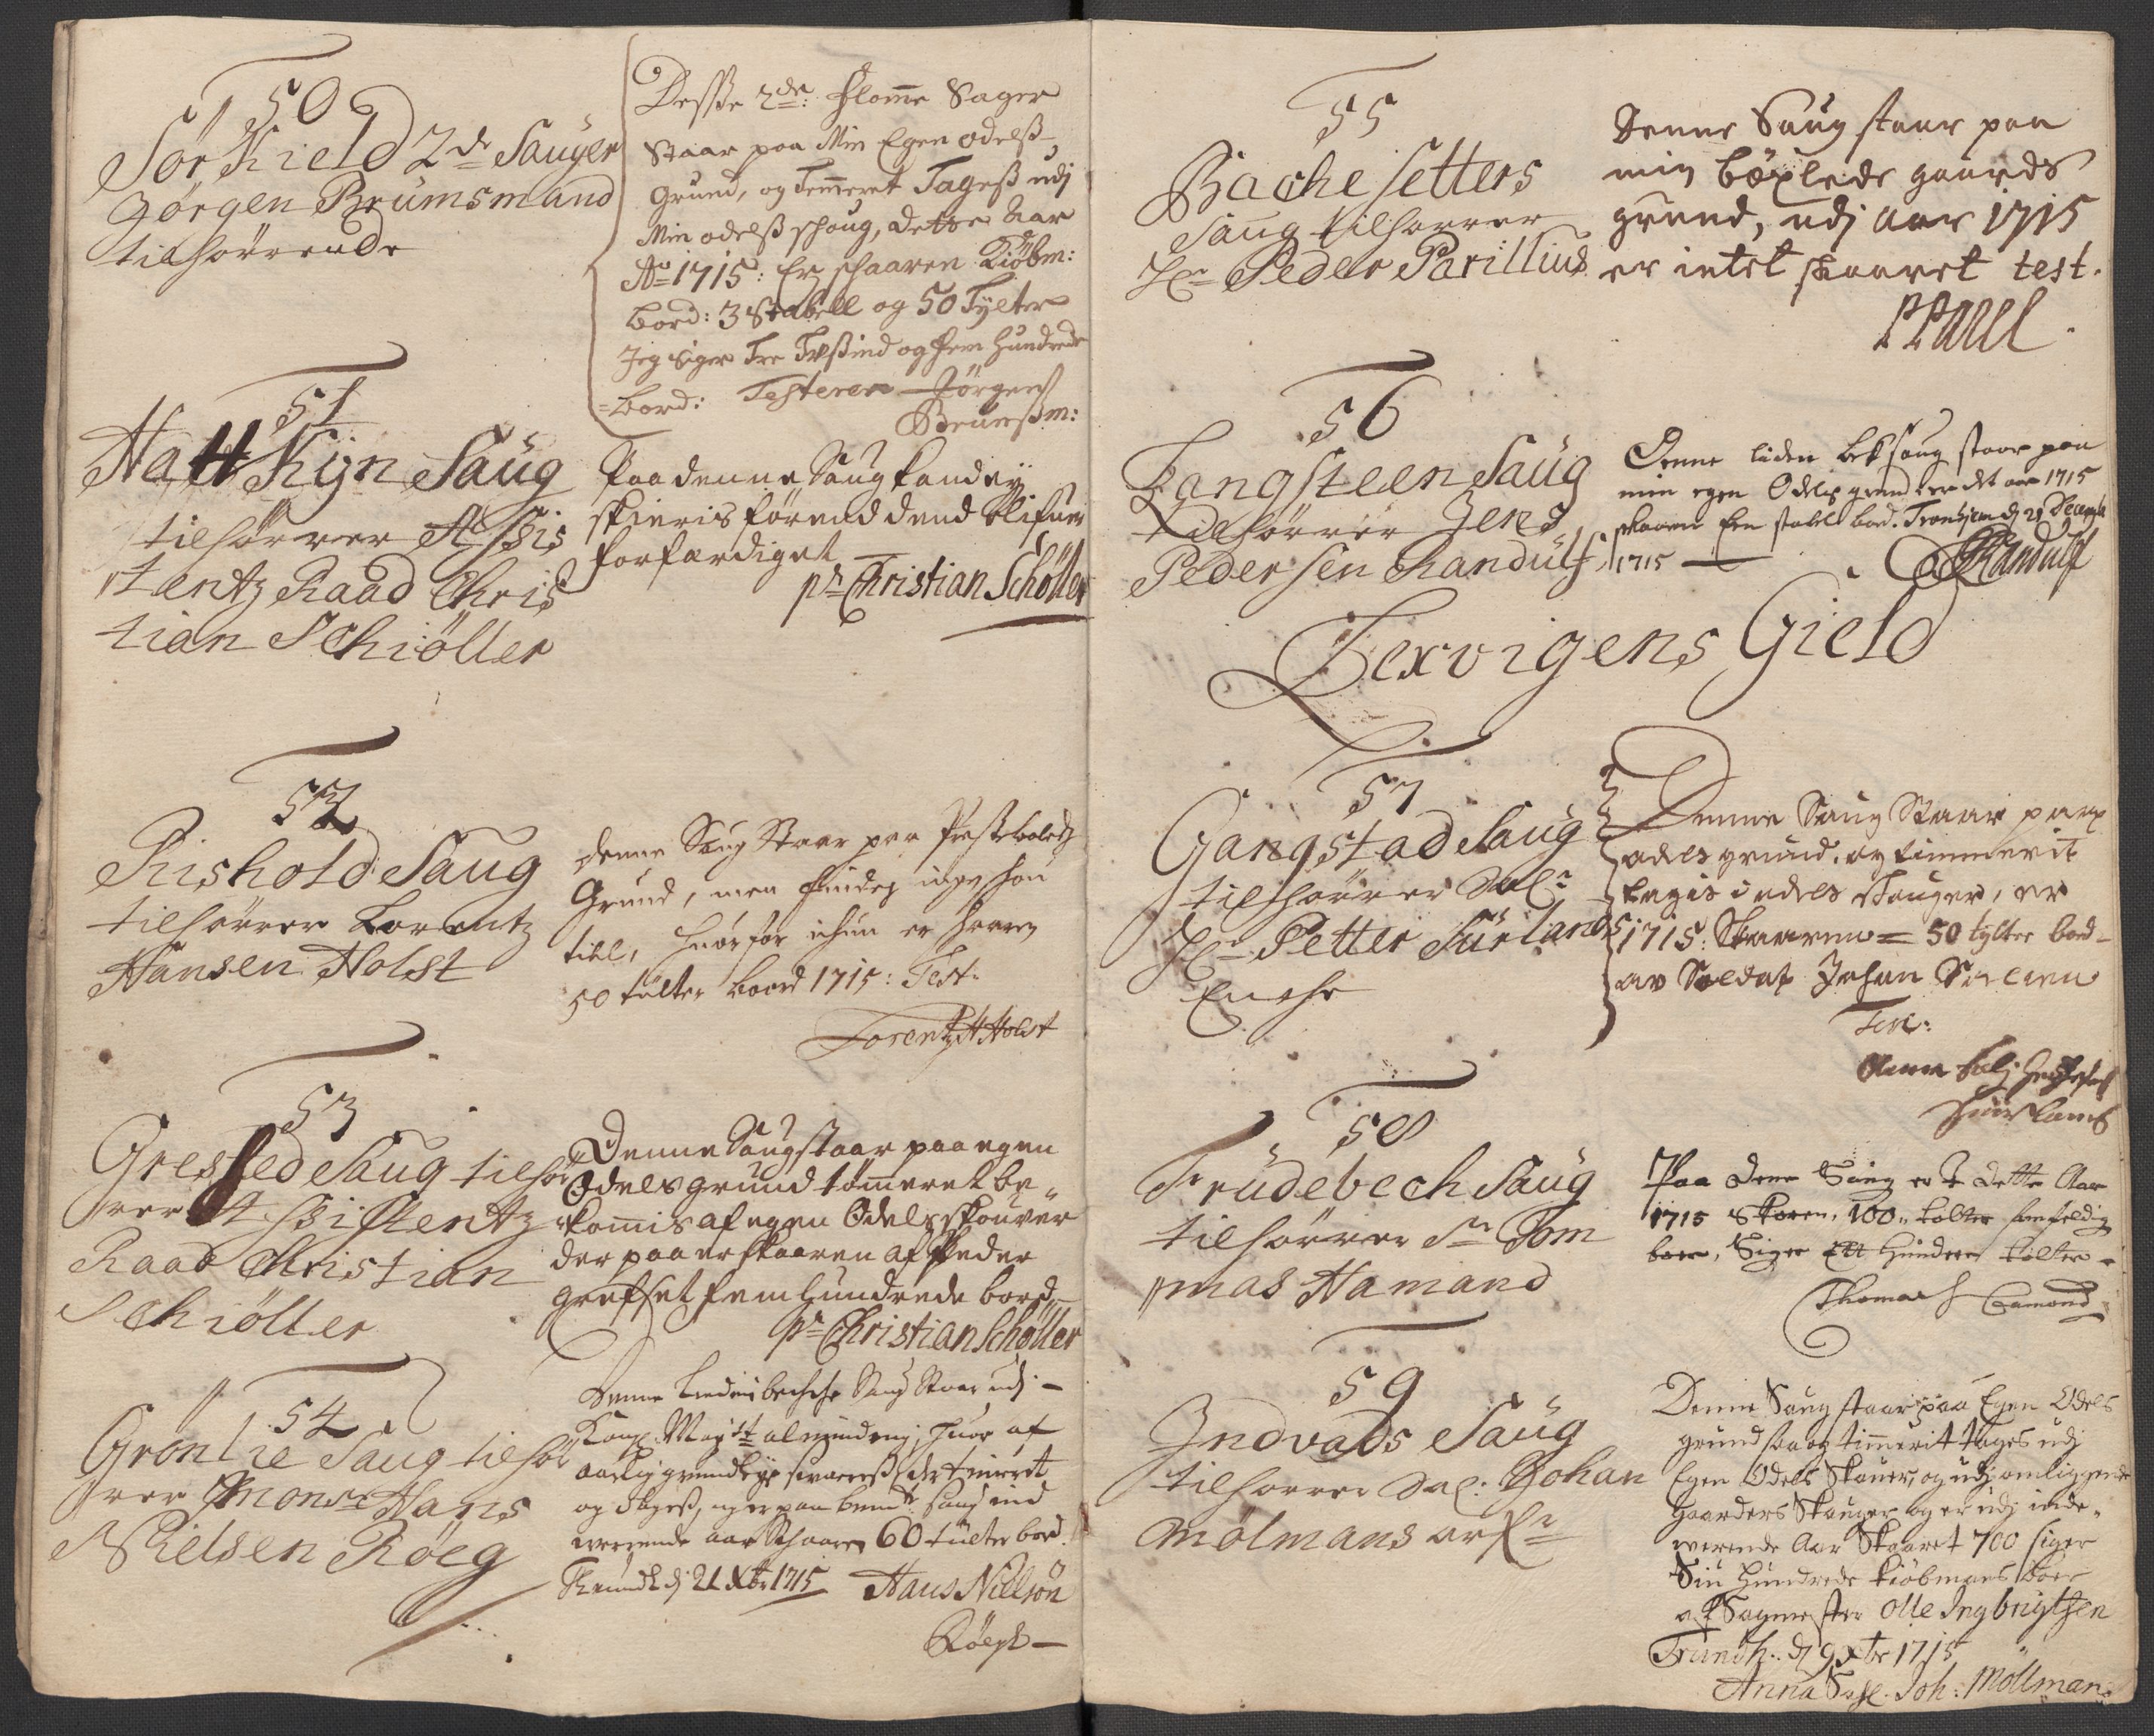 50
Sørkield 2de Sauger
Jørgen Brumsmand
tilhørrende
Desse 2de: flomme Sager
Staar paa Min Egen odelß
grund, og Temmeret Tageß udj
Min odelß schoug, dette Aar
Ao 1715: Er schaaren Kiøbm:
bord: 3 Stabell og 50 Tylter
Jeg siger Tre Tußind og fem Hundrede
bord: Testerer Jørgen
Brumßm:
51
Hattkijn Saug
tilhørrer Assis
tentz Raad Chris
tian Schiöller
Paa denne Saug kand ej
skieris førend dend blifuer
forfærdiget
pr Christian Schøller
52
Rishold Saug
tilhørrer Lorentz
Hansen Holst
denne Saug Staar paa Prestebolets
Grund, men findes ingen schou
till, huorfor ichun er skaaren
50 tülter boord 1715: Test.
Lorentz H Holst
53
Gresfed Saug tilhør
rer Assistentz
Raad Christian
Schiöller
Denne Saug staar paa egen
Odels grund tømmeret be
kommis af egen Odels skouver
der paa er skaaren af Peder
grefset fem hundrede bord
pr Christian Schøller
54
Grønlie Saug tilhør
rer Monsr Hans
Nielsen Röeg
Denne Liden bechche Saug Staar udj
Kongl Mayst alminding, huor af
aarlig grundleye svareß, der tømeret
og tageß, og er paa bemte saug ind
werende aar schaaren 60 tülter bord.
Trundh. dj 21 Xbr 1715 Hans Nillsøn
Röegh
55
Bachesetters
Saug tilhørrer
Hr Peder Parillius
Denne Saug staar paa
min böxlede gaards
grund, udj aar 1715
er intet skaaret test.
P Parel
56
Langsteen Saug
tilhørrer Jens
Pedersen Randulf
Denne liden bek saug staar paa
min egen Odels grund er det aar 1715
skaaren Een stabel bord. Tronhjem dj 21 Decemb
1715
Randulf
Lexvigens Gield
57
Gangstad Saug
tilhørrer Sal:
Hr Petter Fürlands
Enche
Denne Saug Staar paa
odels grund, og timmerit
tagis i odels skouger, er
1715: Skaaren = 50 tylter bord
av Soldat Johan
Test:
Anna Sal:
58
Trüdebech Saug
tilhørrer Sr Tom
mas Hamand
Paa Dene Saug er I dette Aar
1715 Skoren, 100 tolter
boer, Siger Ett Hundrede tolter
Thomas Hamond
59
Indvads Saug
tilhørrer Sal: Johan
Mølmans arfr
Denne Saug staar paa Egen Odels
grund saa og timmerit tages udj
Egen Odels Skouer, og udj omliggende
gaarders Skouger og er udj inde
werende Aar Skaaret 700 siger
Siu Hundrede kiøbmans boer
af Sagmester Olle Ingbrigtsen
Trundh: dj 9 Xbr 1715
Anna Sal. Joh: Möllmans